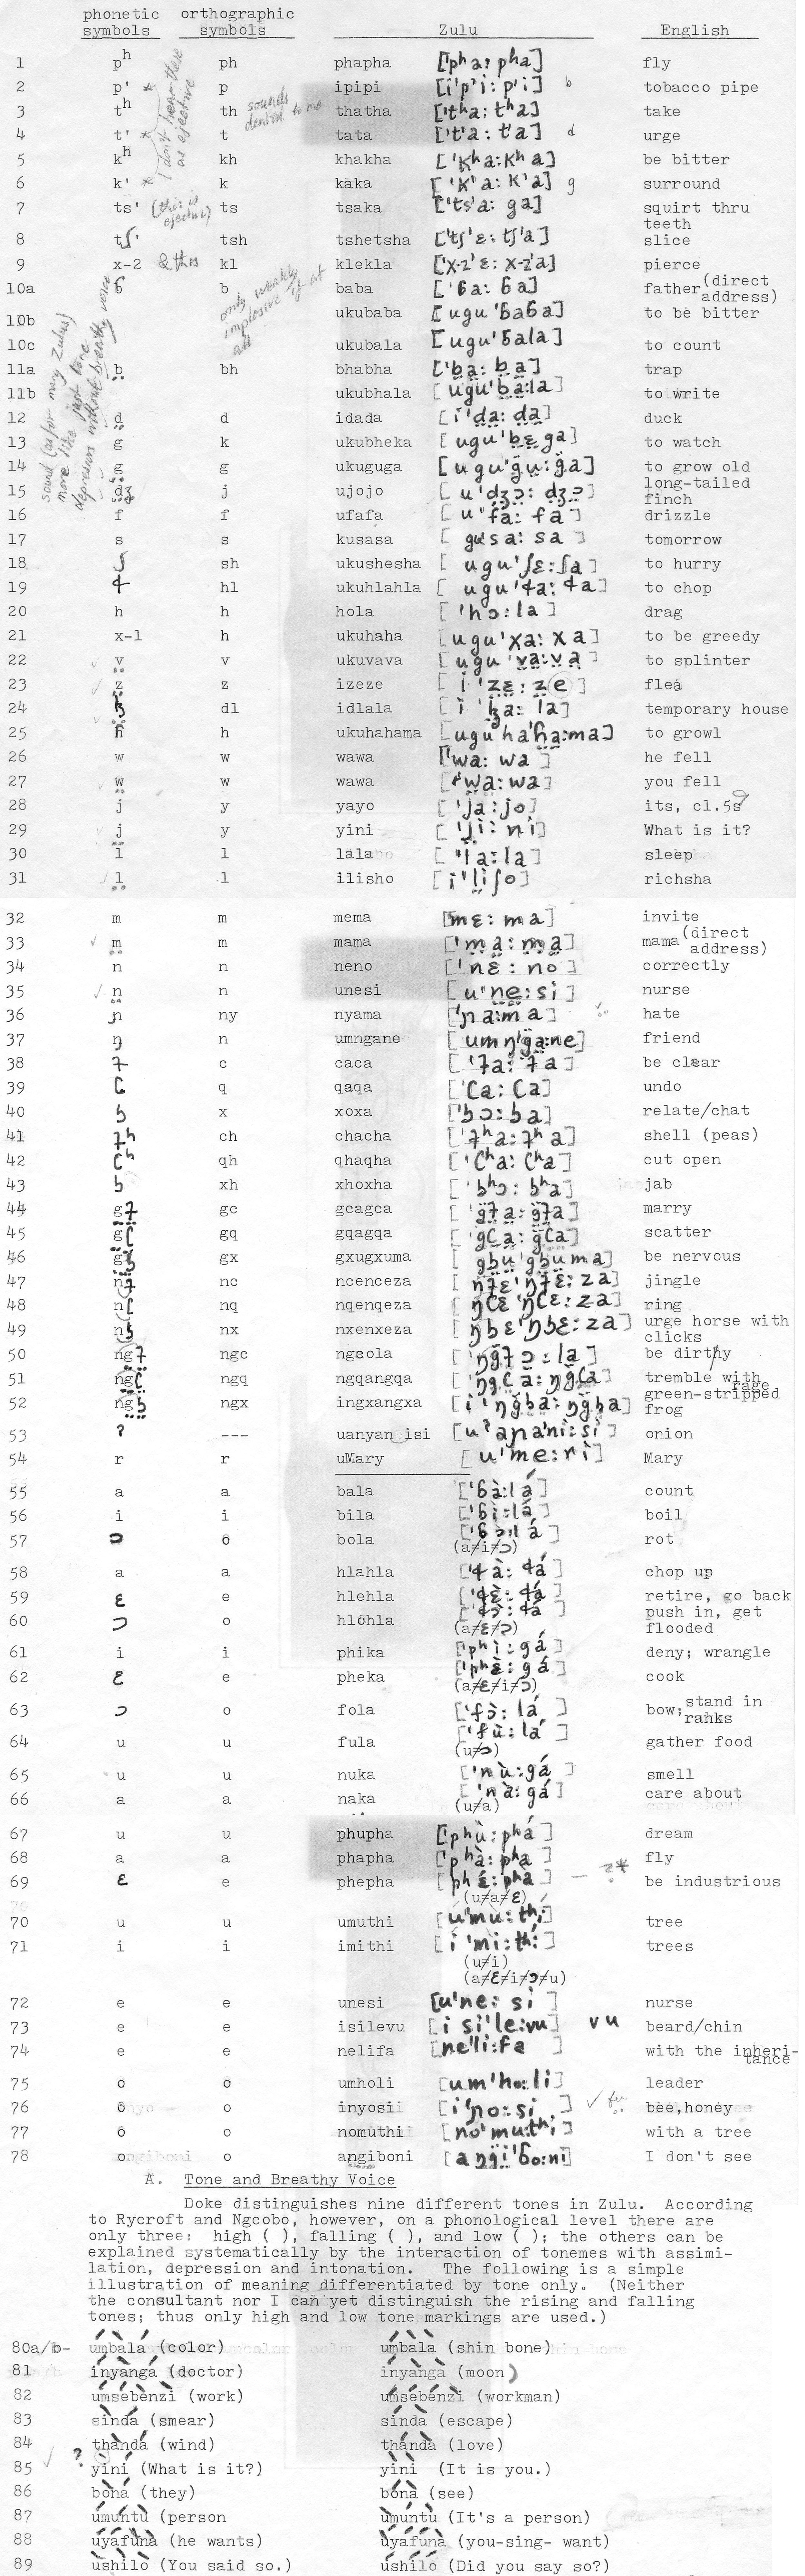 phonetic symbols orthographic symbols Zulu English
1 pʰ ph phapha ['pʰa: pʰa] fly
2 p' p ipipi [i'p'i: p'i] b tobacco pipe
3 tʰ th thatha ['tʰa: tʰa] take
4 t' t tata ['t'a: t'a] d urge
5 kʰ kh khakha ['kʰa: kʰa] be bitter
6 k' k kaka ['k'a: k'a] g surround
7 ts' ts tsaka ['ts'a: ga] squirt thru teeth
8 tʃ' tsh tshetsha ['tʃ'ɛ: tʃ'a] slice
9 x-2 kl klekla ['x-z'ɛ: x-z'a] pierce
10a ɓ b baba ['ɓa: ɓa] father (direct address)
10b ukubaba [ugu'ɓaɓa] to be bitter
10c ukubala [ugu'ɓala] to count
11a b̤ bh bhabha ['b̤a: b̤a] trap
11b ukubhala [ugu'b̤a:la] to write
12 d̤ d idada [i'd̤a: d̤a] duck
13 g k ukubheka [ugu'b̤ɛga] to watch
14 g̤ g ukuguga [ugu'g̤u: g̤a] to grow old
15 d̤ʒ j ujojo [u'dʒɔ: dʒɔ] long-tailed finch
16 f f ufafa [u'fa: fa] drizzle
17 s s kusasa [gu'sa: sa] tomorrow
18 ʃ sh ukushesha [ugu'ʃɛ:ʃa] to hurry
19 ɬ hl ukuhlahla [ugu'ɬa: ɬa] to chop
20 h h hola ['hɔ:la] drag
21 x-1 h ukuhaha [ugu'xa: xa] to be greedy
22 v̤ v ukuvava [ugu'v̤a:v̤a] to splinter
23 z̤ z izeze [i'z̤ɛ: z̤e] flea
24 ɮ dl idlala [i'ɮa: la] temporary house
25 ɦ h ukuhahama [uguha'ɦa:ma] to growl
26 w w wawa ['wa: wa] he fell
27 w̤ w wawa ['w̤a: wa] you fell
28 j y yayo ['ja: jo] its, cl.5s
29 j̤ y yini ['j̤i: ni] What is it?
30 l l lala ['la: la] sleep
31 l̤ l ilisho [i'l̤iʃo] richsha
32 m m mema [mɛ: ma] invite
33 m̤ m mama ['m̤a: m̤a] mama (direct address)
34 n n neno ['nɛ: no] correctly
35 n̤ n unesi [u'n̤e: si] nurse
36 ɲ ny nyama ['ɲa:ma] hate
37 ŋ n umngane [umŋ'g̤a:ne] friend
38 ʇ c caca ['ʇa: ʇa] be clear
39 ʗ q qaqa ['ʗa: ʗa] undo
40 ʖ x xoxa ['ʖɔ: ʖa] relate/chat
41 ʇʰ ch chacha ['ʇʰa: ʇʰa] shell (peas)
42 ʗʰ qh qhaqha ['ʗʰa: ʗʰa] cut open
43 ʖ xh xhoxha ['ʖʰɔ: ʖʰa] jab
44 g̤ʇ gc gcagca ['g̤ʇa: g̤ʇa] marry
45 g̤ʗ gq gqagqa ['gʗa: g̤ʗa] scatter
46 g̤ʖ gx gxugxuma [gʖu'gʖuma] be nervous
47 nʇ nc ncenceza [ŋʇɛ'ŋʇɛ: za] jingle
48 nʗ nq nqenqeza [ŋʗɛ'ŋʗɛ: za] ring
49 nʖ nx nxenxeza [ŋʖɛ'ŋʖɛ: za] urge horse with clicks
50 ngʇ ngc ngcola ['ŋgʇɔ: la] be dirthy
51 ngʗ ngq ngqangqa ['ŋgʗa: ŋgʗa] tremble with rage
52 ngʖ ngx ingxangxa [i'ŋgʖa: ŋgʖa] green-stripped frog
53 ʔ --- uanyan isi [uʔaɲa'ni: si] onion
54 r r uMary [u'me:ri] Mary
55 a a bala ['ɓà:lá] count
56 i i bila ['ɓì:lá] boil
57 ɔ o bola ['ɓɔ̀:lá] rot
(a≠i≠ɔ)
58 a a hlahla ['ɬà: ɬá] chop up
59 ɛ e hlehla ['ɬɛ̀: ɬá] retire, go back
60 ɔ o hlohla ['ɬɔ̀: ɬá] push in, get flooded
(a≠ɛ≠ɔ)
61 i i phika ['phì: gá] deny; wrangle
62 ɛ e pheka ['phɛ̀: gá] cook
(a≠ɛ≠i≠ɔ)
63 ɔ o fola ['fɔ̀: lá] bow; stand in ranks
64 u u fula ['fù: lá] gather food
(u≠ɔ)
65 u u nuka ['nù: gá] smell
66 a a naka ['nà: gá] care about
(u≠a)
67 u u phupha ['phù: phá] dream
68 a a phapha ['phà: pha] fly
69 ɛ e phepha [phɛ́: phà] — ?* be industrious
(u≠a≠ɛ)
70 u u umuthi [u'mu: thi] tree
71 i i imithi [i'mi: thi] trees
(u≠i)
(a≠ɛ≠i≠ɔ≠u)
72 e e unesi [u'ne: si] nurse
73 e e isilevu [isi'le:vu] vu beard/chin
74 e e nelifa [ne'li:fa] with the inheritance
75 o o umholi [um'ho:li] leader
76 o o inyosi [i'ɲo: si] bee,honey
77 o o nomuthi [no'mu:thi] with a tree
78 o o angiboni [aŋgi'ɓo:ni] I don't see
A. Tone and Breathy Voice
Doke distinguishes nine different tones in Zulu. According
to Rycroft and Ngcobo, however, on a phonological level there are
only three: high ( ), falling ( ), and low ( ); the others can be
explained systematically by the interaction of tonemes with assimi-
lation, depression and intonation. The following is a simple
illustration of meaning differentiated by tone only. (Neither
the consultant nor I can yet distinguish the rising and falling
tones; thus only high and low tone markings are used.)
80a/b- umbala (color) umbala (shin bone)
81 inyanga (doctor) inyanga (moon)
82 umsebenzi (work) umsebenzi (workman)
83 sinda (smear) sinda (escape)
84 thanda (wind) thanda (love)
85 yini (What is it?) yini (It is you.)
86 bona (they) bona (see)
87 umuntu (person umuntu (It's a person)
88 uyafuna (he wants) uyafuna (you-sing- want)
89 ushilo (You said so.) ushilo (Did you say so?)
I don't hear these as ejective
sounds dental to me
(this is ejective)
& this
only weakly implosive if at all
sound (as for many Zulus) more like just tone depressors without breathy voice